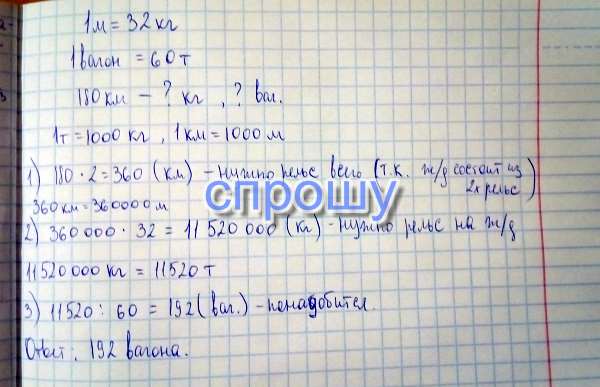 1м = 32 кг
1 вагон = 60 т
180 км – ? кг , ? ваг.
1т = 1000 кг , 1 км = 1000 м
1) 180 · 2 = 360 (км) – нужно рельс всего (т.к. ж/д состоит из 2х рельс)
360 км = 360000 м
спрошу
2) 360 000 · 32 = 11 520 000 (кг) – нужно рельс на ж/д
11520 000 кг = 11520 т
3) 11520 : 60 = 192 (ваг.) – понадобится
Ответ: 192 вагона.